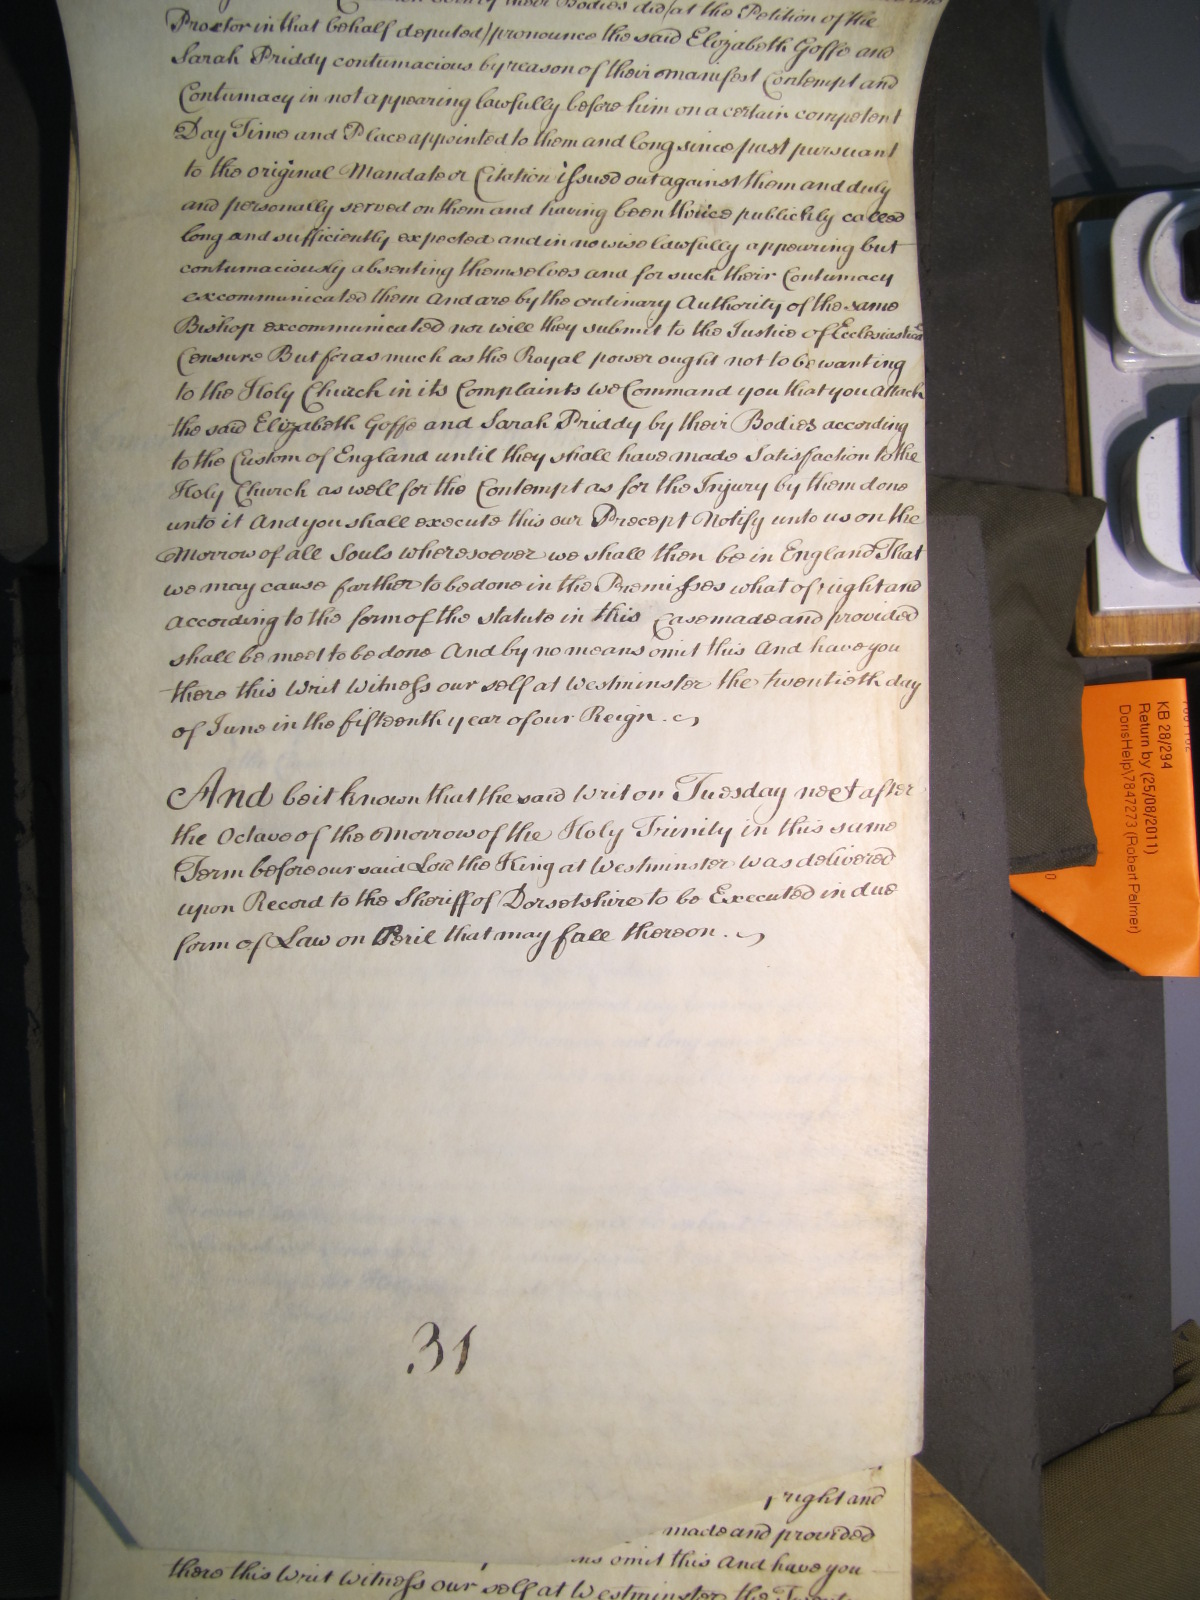 of their Bodies did/at the Petition of the
Proctor in that behalf deputed/pronounce the said Elizabeth Goffe and
Sarah Priddy contumacious by reason of their manifest Contempt and
Contumacy in not appearing lawfully before him on a certain competent
Day Time and Place appointed to them and long since past pursuant
to the original Mandate or Citation issued out against them and duly
and personally served on them and having been thrice publickly called
long and sufficiently expected and in no wise lawfully appearing but
contumaciously absenting themselves and for such their Contumacy
excommunicated them And are by the ordinary Authority of the same
Bishop excommunicated nor will they submit to the Justice of Ecclesiastical
Censure But forasmuch as the Royal power ought not to be wanting
to the Holy Church in its Complaints we Command you that you Attach
the said Elizabeth Goffe and Sarah Priddy by their Bodies according
to the Custom of England until they shall have made Satisfaction to the
Holy Church as well for the Contempt as for the Injury by them done
unto it And you shall execute this our Precept Notify unto us on the
Morrow of all Souls wheresoever we shall then be in England That
we may cause farther to be done in the Premisses what of right and
according to the form of the statute in this Case made and provided
shall be meet to be done And by no means omit this And have you
there this Writ Witness our self at Westminster the twentieth day
of June in the fifteenth year of our Reign.
And be it known that the said Writ on Tuesday next after
the Octave of the Morrow of the Holy Trinity in this same
Term before our said Lord the King at Westminster was delivered
upon Record to the Sheriff of Dorsetshire to be Executed in due
form of Law on Peril that may fall thereon.
31
right and
made and provided
ns omit this And have you
there this Writ Witness our self at Westminster the Twent
KB 28/294
Return by (25/08/2011)
DorisHelp\7847273 (Robert Palmer)